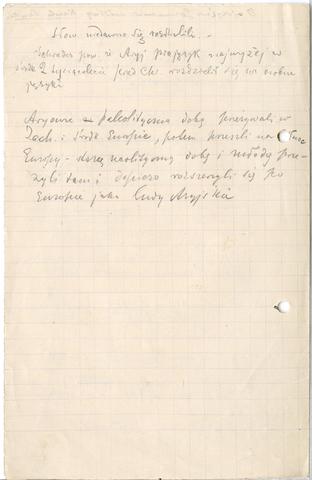 Słow. niedawno się rozdzielili. –
Schrader pow. iż Aryj prajęzyk najwyżej w
środk 2 tysiącoleciu przed Chr. rozdzielił się na osobne
języki
Aryowie paleolityczną dobę przeżywali w
Zach. i środk Europie, potem przeszli na
Europy – starą neolityczną dobę i młodą prze-
żyli tam i dopiero rozszerzyli się po
Europie jako Ludy Aryjskie